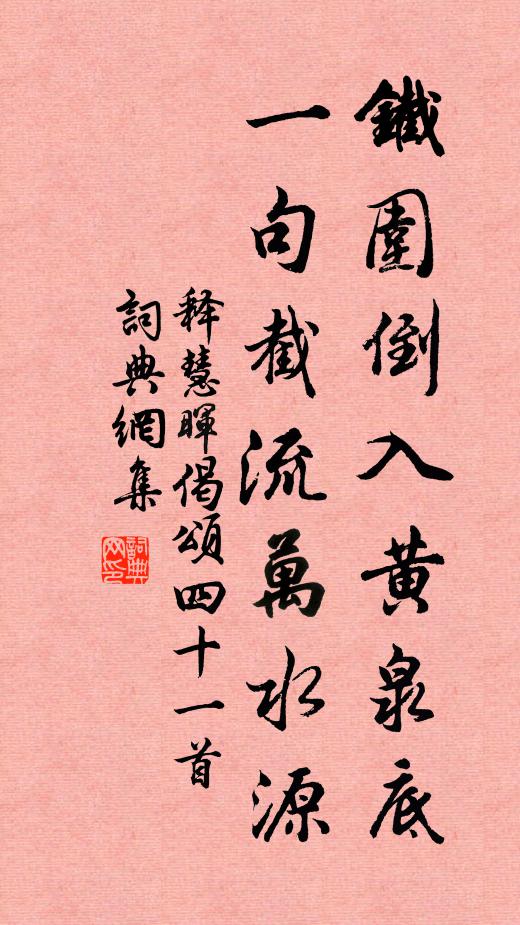 鐵圍倒入黄泉底
一句截流萬水源
释慧暉偈頌四十一首
詞典網集
詞典網印